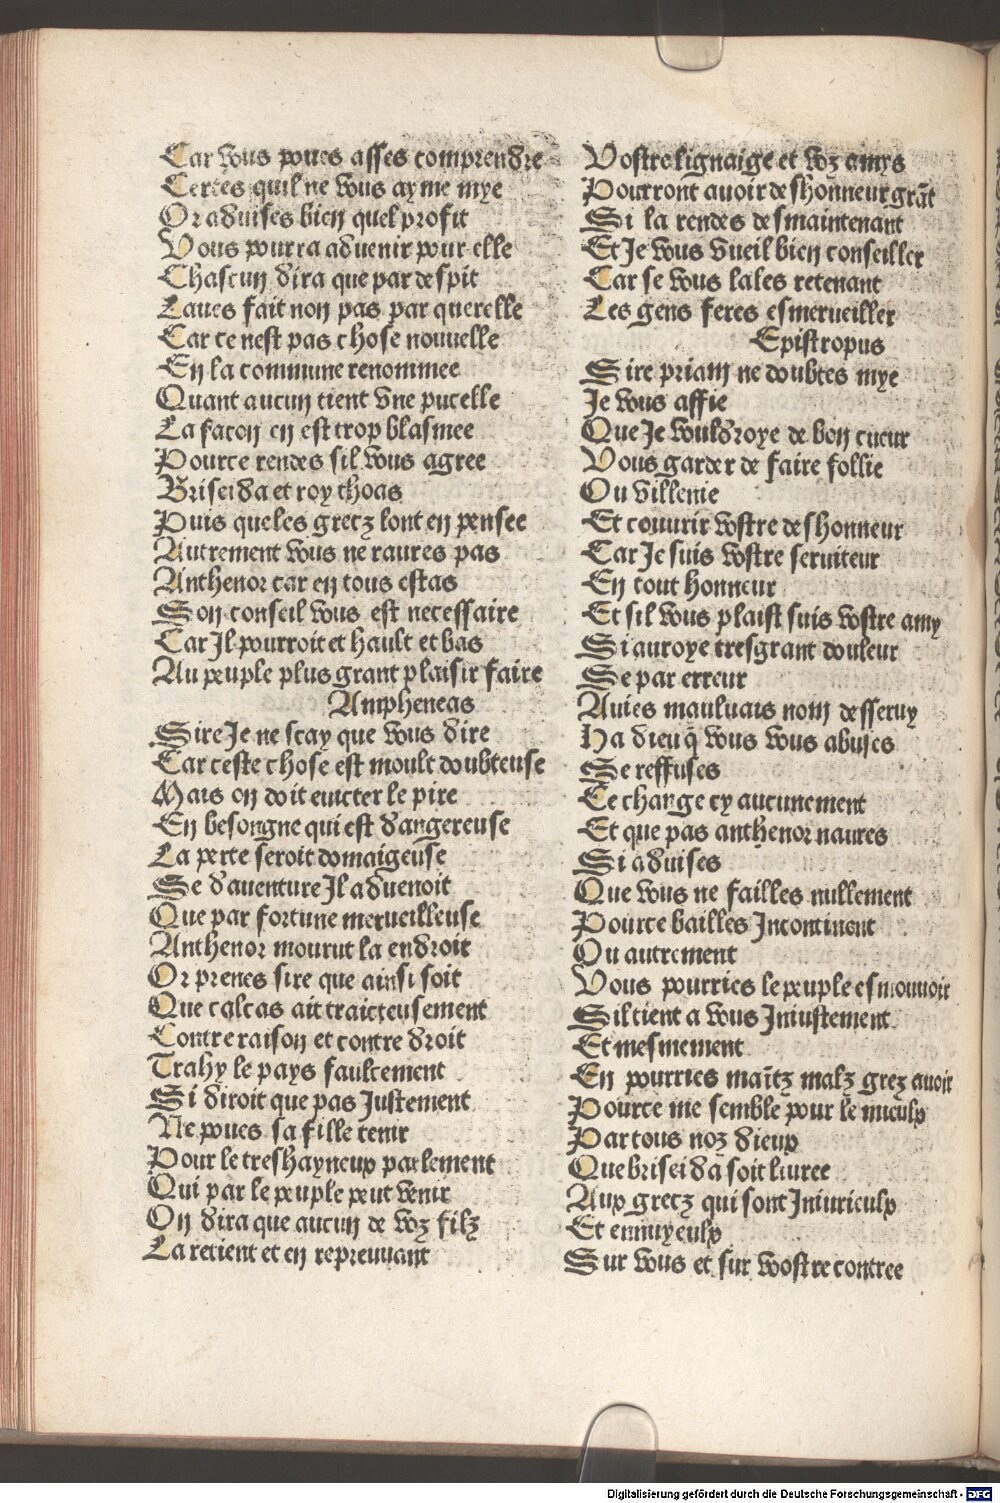 Car vous poues asses comprendre
Certes quil ne vous ayme mye
Or aduises bien quel profit
Vous pourra aduenir pour elle
Chascun dira que par despit
Laues fait non pas par querelle
Car ce nest pas chose nouuelle
En la commune renommee
Quant aucun tient vne pucelle
La facon en est trop blasmee
Pource rendes sil vous agree
Briseida et roy thoas
Puis que les grecz lont en pensee
Autrement vous ne raures pas
Anthenor car en tous estas
Son conseil vous est necessaire
Car Jl pourroit et hault et bas
Au peuple plus grant plaisir faire
Ampheneas
Sire Je ne scay que vous dire
Car ceste chose est moult doubteuse
Mais on doit euicter le pire
En besongne qui est dangereuse
La perte seroit domaigeuse
Se dauenture Jl aduenoit
Que par fortune merueilleuse
Anthenor mourut la endroit
Or prenes sire que ainsi soit
Que calcas ait traicteusement
Contre raison et contre droit
Trahy le pays faulcement
Si diroit que pas Justement
Ne poues sa fille tenir
Pour le treshayneux parlement
Qui par le peuple peut venir
On dira que aucun de voz filz
La retient et en repreuuant
Vostre lignaige et voz amys
Pourront auoir deshonneur grāt
Si la rendes desmaintenant
Et Je vous vueil bien conseiller
Car se vous lales retenant
Les gens feres esmerueiller
Epistropus
Sire priam ne doubtes mye
Je vous affie
Que Je vouldroye de bon cueur
Vous garder de faire follie
Ou villenie
Et couurir vostre deshonneur
Car Je suis vostre seruiteur
En tout honneur
Et sil vous plaist suis vostre amy
Si auroye tresgrant douleur
Se par erreur
Auies mauluais nom desseruy
Ha dieu q̄ vous vous abuses
Se reffuses
Ce change cy aucunement
Et que pas anthenor naures
Si aduises
Que vous ne failles nullement
Pource bailles Jncontinent
Ou autrement
Vous pourries le peuple esmouuoir
Sil tient a vous Jniustement
Et mesmement
En pourries maītz malz grez auoir
Pource me semble pour le mieulx
Par tous noz dieux
Que briseida soit liuree
Aux grecz qui sont Jniurieulx
Et ennuyeulx
Sur vous et sur vostre contree
Digitalisierung gefördert durch die Deutsche Forschungsgemeinschaft - DFG